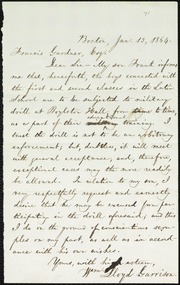 Boston, Jan. 13, 1864.
Francis Gardner, Esq.
Dear Sir—My son Frank informs
me that, henceforth, the boys connected with
the first and second classes in the Latin
School are to be subjected to military
drill at Boylston Hall, from to time
as a part of their training. I
trust the drill is not to be an arbitrary
enforcement; but, doubtless, it will meet
with general acceptance, and, therefore,
exceptional cases may the more readily
be allowed. In relation to my son, I
very respectfully request and earnestly
desire that he may be excused from par-
ticipating in the drill aforesaid; and this
I do on the ground of conscientious scru-
ples on my part, as well as in accord-
ance with his own wishes.
Yours, with high esteem,
Wm. Lloyd Garrison.